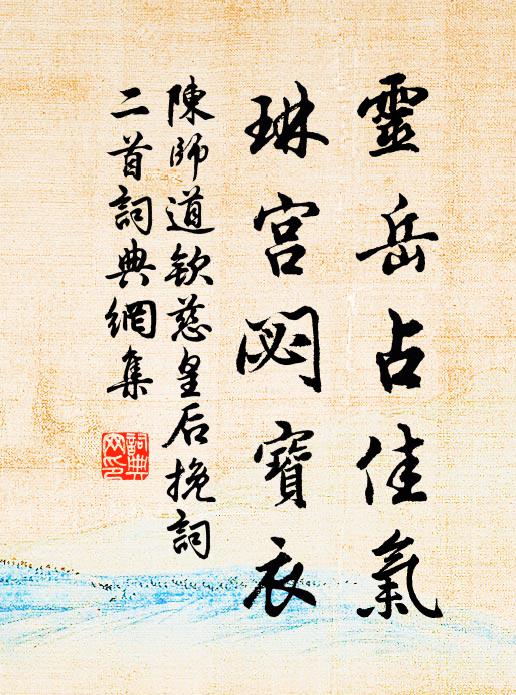 靈岳占佳氣
琳宮閟寶衣
陳師道欽慈皇后挽詞
二首詞典網集
詞典
网印